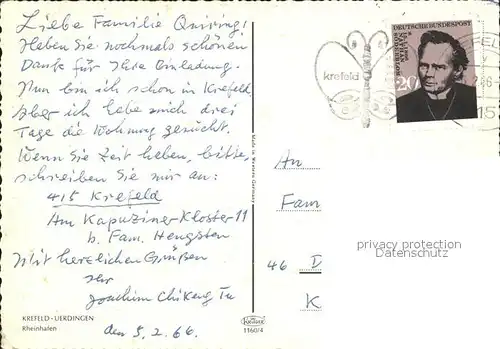 Liebe Familie Quiring!
Haben Sie nochmals schönen
Dank für Ihre Einladung.
Nun bin ich schon in Krefeld,
Aber ich habe mich drei
Tage die Wohnung gesucht.
Wenn Sie Zeit haben, bitte,
schreiben Sie mir an:
415 Krefeld
Am Kapuziner-Kloster 11
b. Fam. Hengsten
Mit herzlichen Grüßen
Ihr
Joachim
den 5.2.66.
KREFELD-UERDINGEN
Rheinhafen
Made in Western Germany
1160/4
krefeld
DEUTSCHE BUNDESPOST
NATHAN SÖDERBLOM
20
An
Fam
46 D
K
privacy protection
Datenschutz